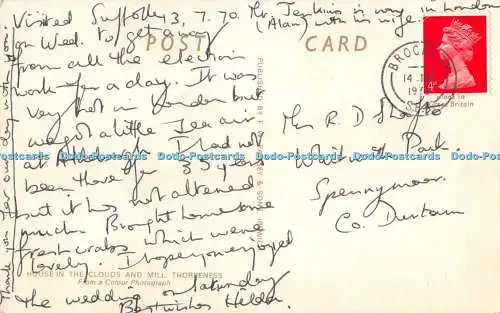 Visited Suffolk 3.7.70. Mr Jenkins is away in London
on Wed. to get away (Alan) with his wife.
from all the election
work for a day. It was
very hot in London but
we got a little sea air
at I had not
been there for 35 years
but it has not altered
much. Brought home some
fresh crabs which were
lovely. I hope you enjoyed
the wedding on Saturday
Best wishes Hilda.
Thank you for our day with you.
POST CARD
PUBLISHED BY F. & SONS,
HOUSE IN THE CLOUDS AND MILL, THORPENESS
From a Colour Photograph
BROCK
14 
19
4d
Printed in
Great Britain
Mrs R D
Wait 
Park.
Spennymoor.
Co. Durham
Dodo-Postcards Dodo-Postcards Dodo-Postcards Dodo-Postcards Dodo-Postcards